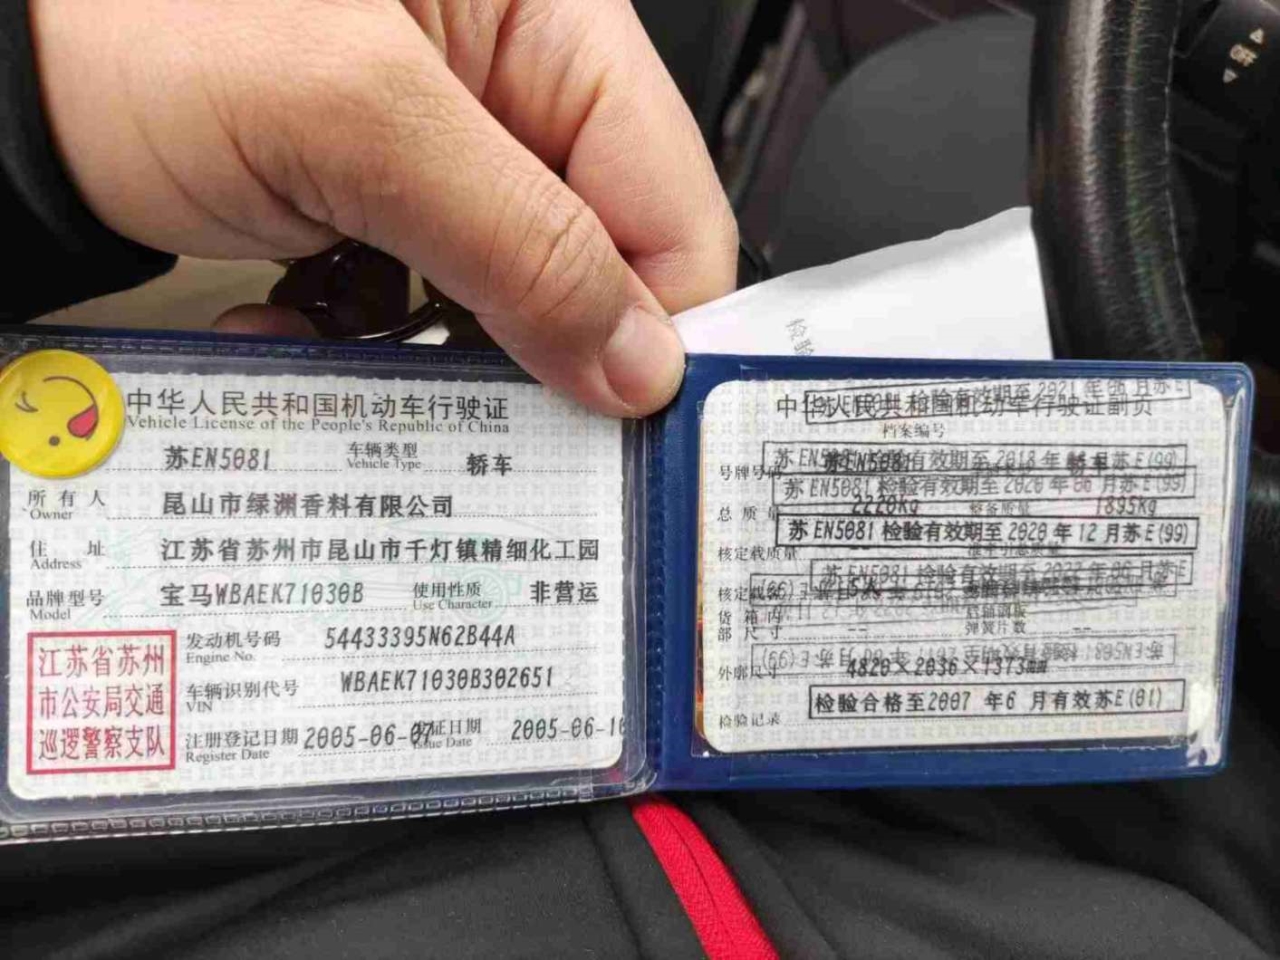 中华人民共和国机动车行驶证
Vehicle License of the People's Republic of China
苏EN5081 车辆类型 轿车
Vehicle Type
所有人 昆山市绿渊香料有限公司
Owner
住址 江苏省苏州市昆山市千灯镇精细化工园
Address
品牌型号 宝马WBAEK71030B 使用性质 非营运
Model Use Character
江苏省苏州
市公安局交通
巡逻警察支队
发动机号码 54433395N62B44A
Engine No.
车辆识别代号 WBAEK71030B302651
VIN
注册登记日期 2005-06-07 发证日期 2005-06-10
Register Date Issue Date
中华人民共和国机动车行驶证副页
检验有效期至2021年06月苏E
档案编号
号牌号码 苏EN5081 轿车
苏EN5081 检验有效期至2018年06月苏E(99)
苏EN5081 检验有效期至2020年06月苏E(99)
总质量 2220kg 整备质量 1895kg
苏EN5081 检验有效期至2020年12月苏E(99)
核定载质量 --
苏EN5081 检验有效期至2022年06月苏E
核定载 5人
货箱内
部尺寸 -- 后轴钢板
弹簧片数 --
外廓尺寸 4820×2036×1373mm
检验记录 检验合格至2007 年6 月有效苏E(01)
检验
OFF